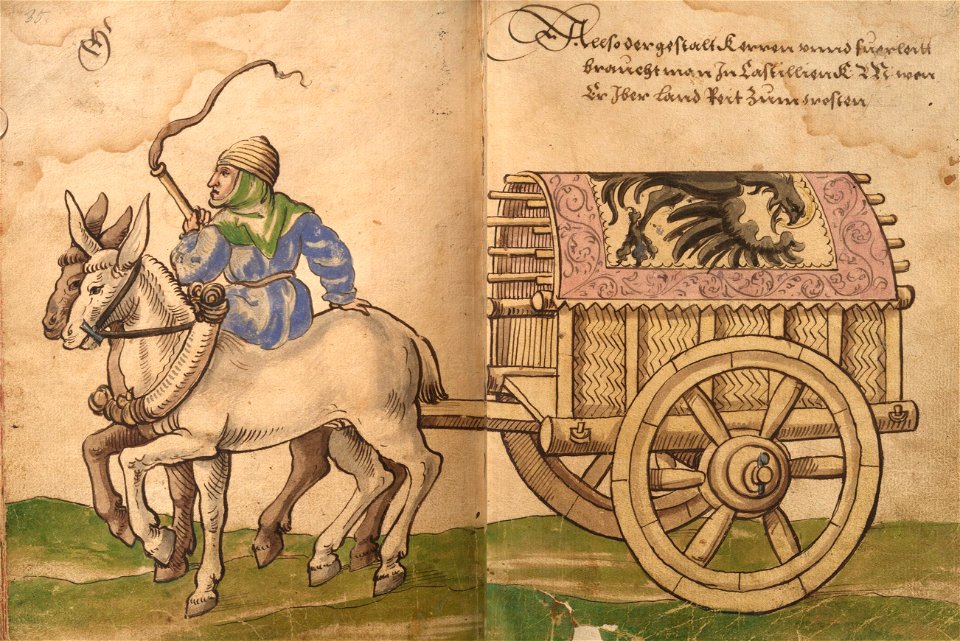 35
Allso der gestalt Kerren vnnd fuerleitt
braucht man In Castillien K M wen
Er Iber land Reit Zum mosten